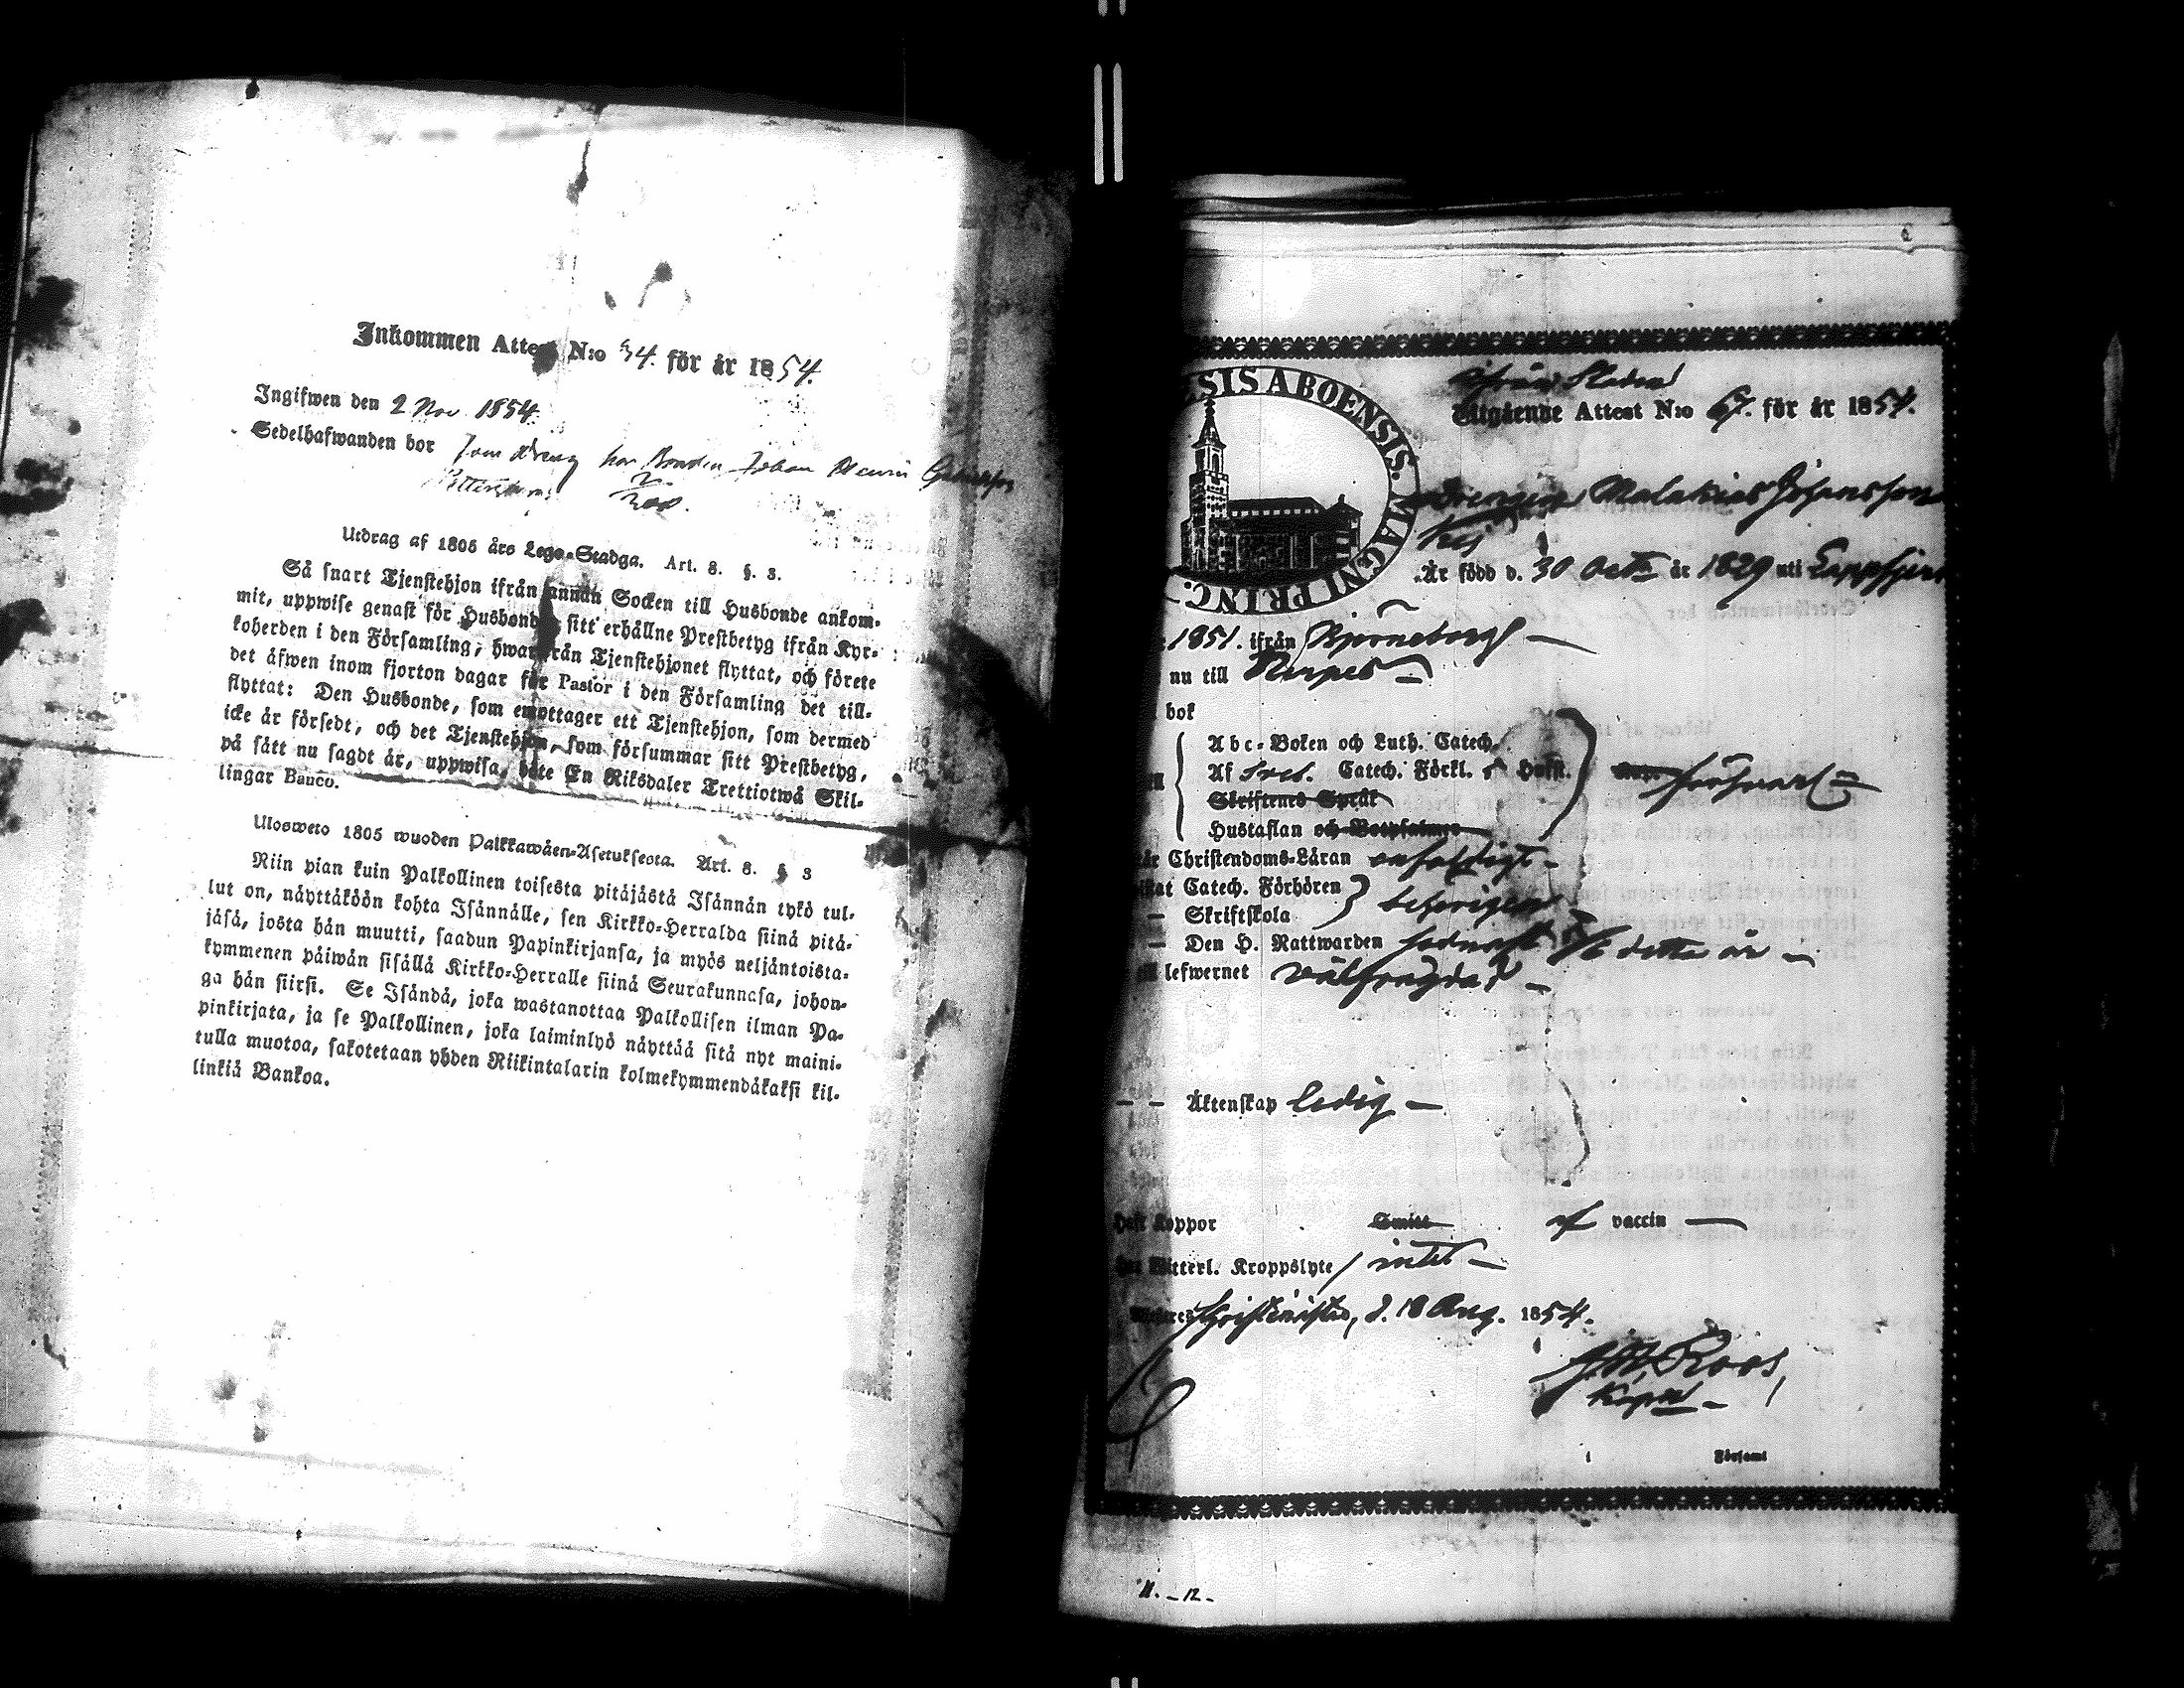 Inkommen Attest N:o 34. för år 1854.
Ingifwen den 2 Nov 1854.
Sedelhafwanden bor som dreng hos Bonden Johan Henric
Utdrag af 1805 års Lego-Stadga. Art. 8. §. 3.
Så snart Tjenstehjon ifrån annan Socken till Husbonde ankom-
mit, uppwise genast för Husbonden sitt erhållne Prestbetyg ifrån Kyr-
koherden i den Församling, hwarifrån Tjenstehjonet flyttat, och förete
det äfwen inom fjorton dagar för Pastor i den Församling det till-
flyttat: Den Husbonde, som emottager ett Tjenstehjon, som dermed
icke är försedt, och det Tjenstehjon, som försummar sitt Prestbetyg,
på sätt nu sagdt är, uppwisa, böte En Riksdaler Trettiotwå Skil-
lingar Banco.
Ulosweto 1805 wuoden Palkkawäen-Asetuksesta. Art. 8. § 3
Niin pian kuin Palkollinen toisesta pitäjästä Isännän tykö tul-
lut on, näyttäköön kohta Isännälle, sen Kirkko-Herralda siinä pitä-
jäsä, josta hän muutti, saadun Papinkirjansa, ja myös neljäntoista-
kymmenen päiwän sisällä Kirkko-Herralle siinä Seurakunnasa, johon-
ga hän siirsi. Se Isändä, joka wastanottaa Palkollisen ilman Pa-
pinkirjata, ja se Palkollinen, joka laiminlyö näyttää sitä nyt maini-
tulla muotoa, sakotetaan yhden Riikintalarin kolmekymmendäkaksi kil-
linkiä Bankoa.
SIS ABOENSIS. MAGNI PRINC.
ifrån Staden
Utgående Attest N:o 67. för år 1854.
Drengen Malakias Johansson
Är född d. 30 Octr år 1829 uti Lappfjerd
1851. ifrån Björneborg
nu till Nerpes
bok
Abc-Boken och Luth. Catech.
Af Sveb. Catech. Förkl. Husst. försvarl
Skriftens Språk
Hustaflan och Botpsalmer
Christendoms-Läran enfaldigt
Catech. Förhören
— Skriftskola behörigen
— Den H. Nattwarden sednast detta år
lefwernet välfrägdad
— — Äktenskap ledig
Haft Koppor Smitt af vaccin
Witterl. Kroppslyte intet
Christinestad, d. 18 Aug. 1854.
Roos,
Kapel
Församl
11. - 12.